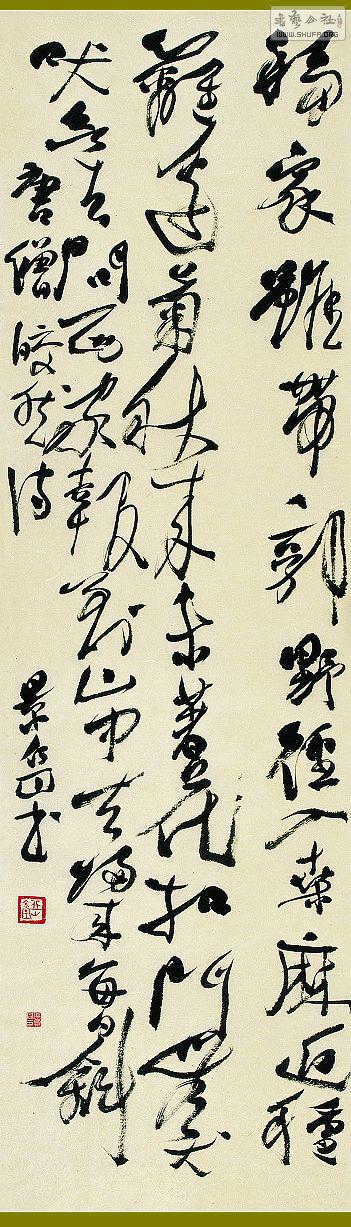 书艺公社
WWW.SHUFA.ORG
移家雖帶郭野徑入桑麻近種
籬邊菊秋來未著花扣門無犬
吠欲去問西家報道山中去歸來每日斜
唐僧皎然詩
景書